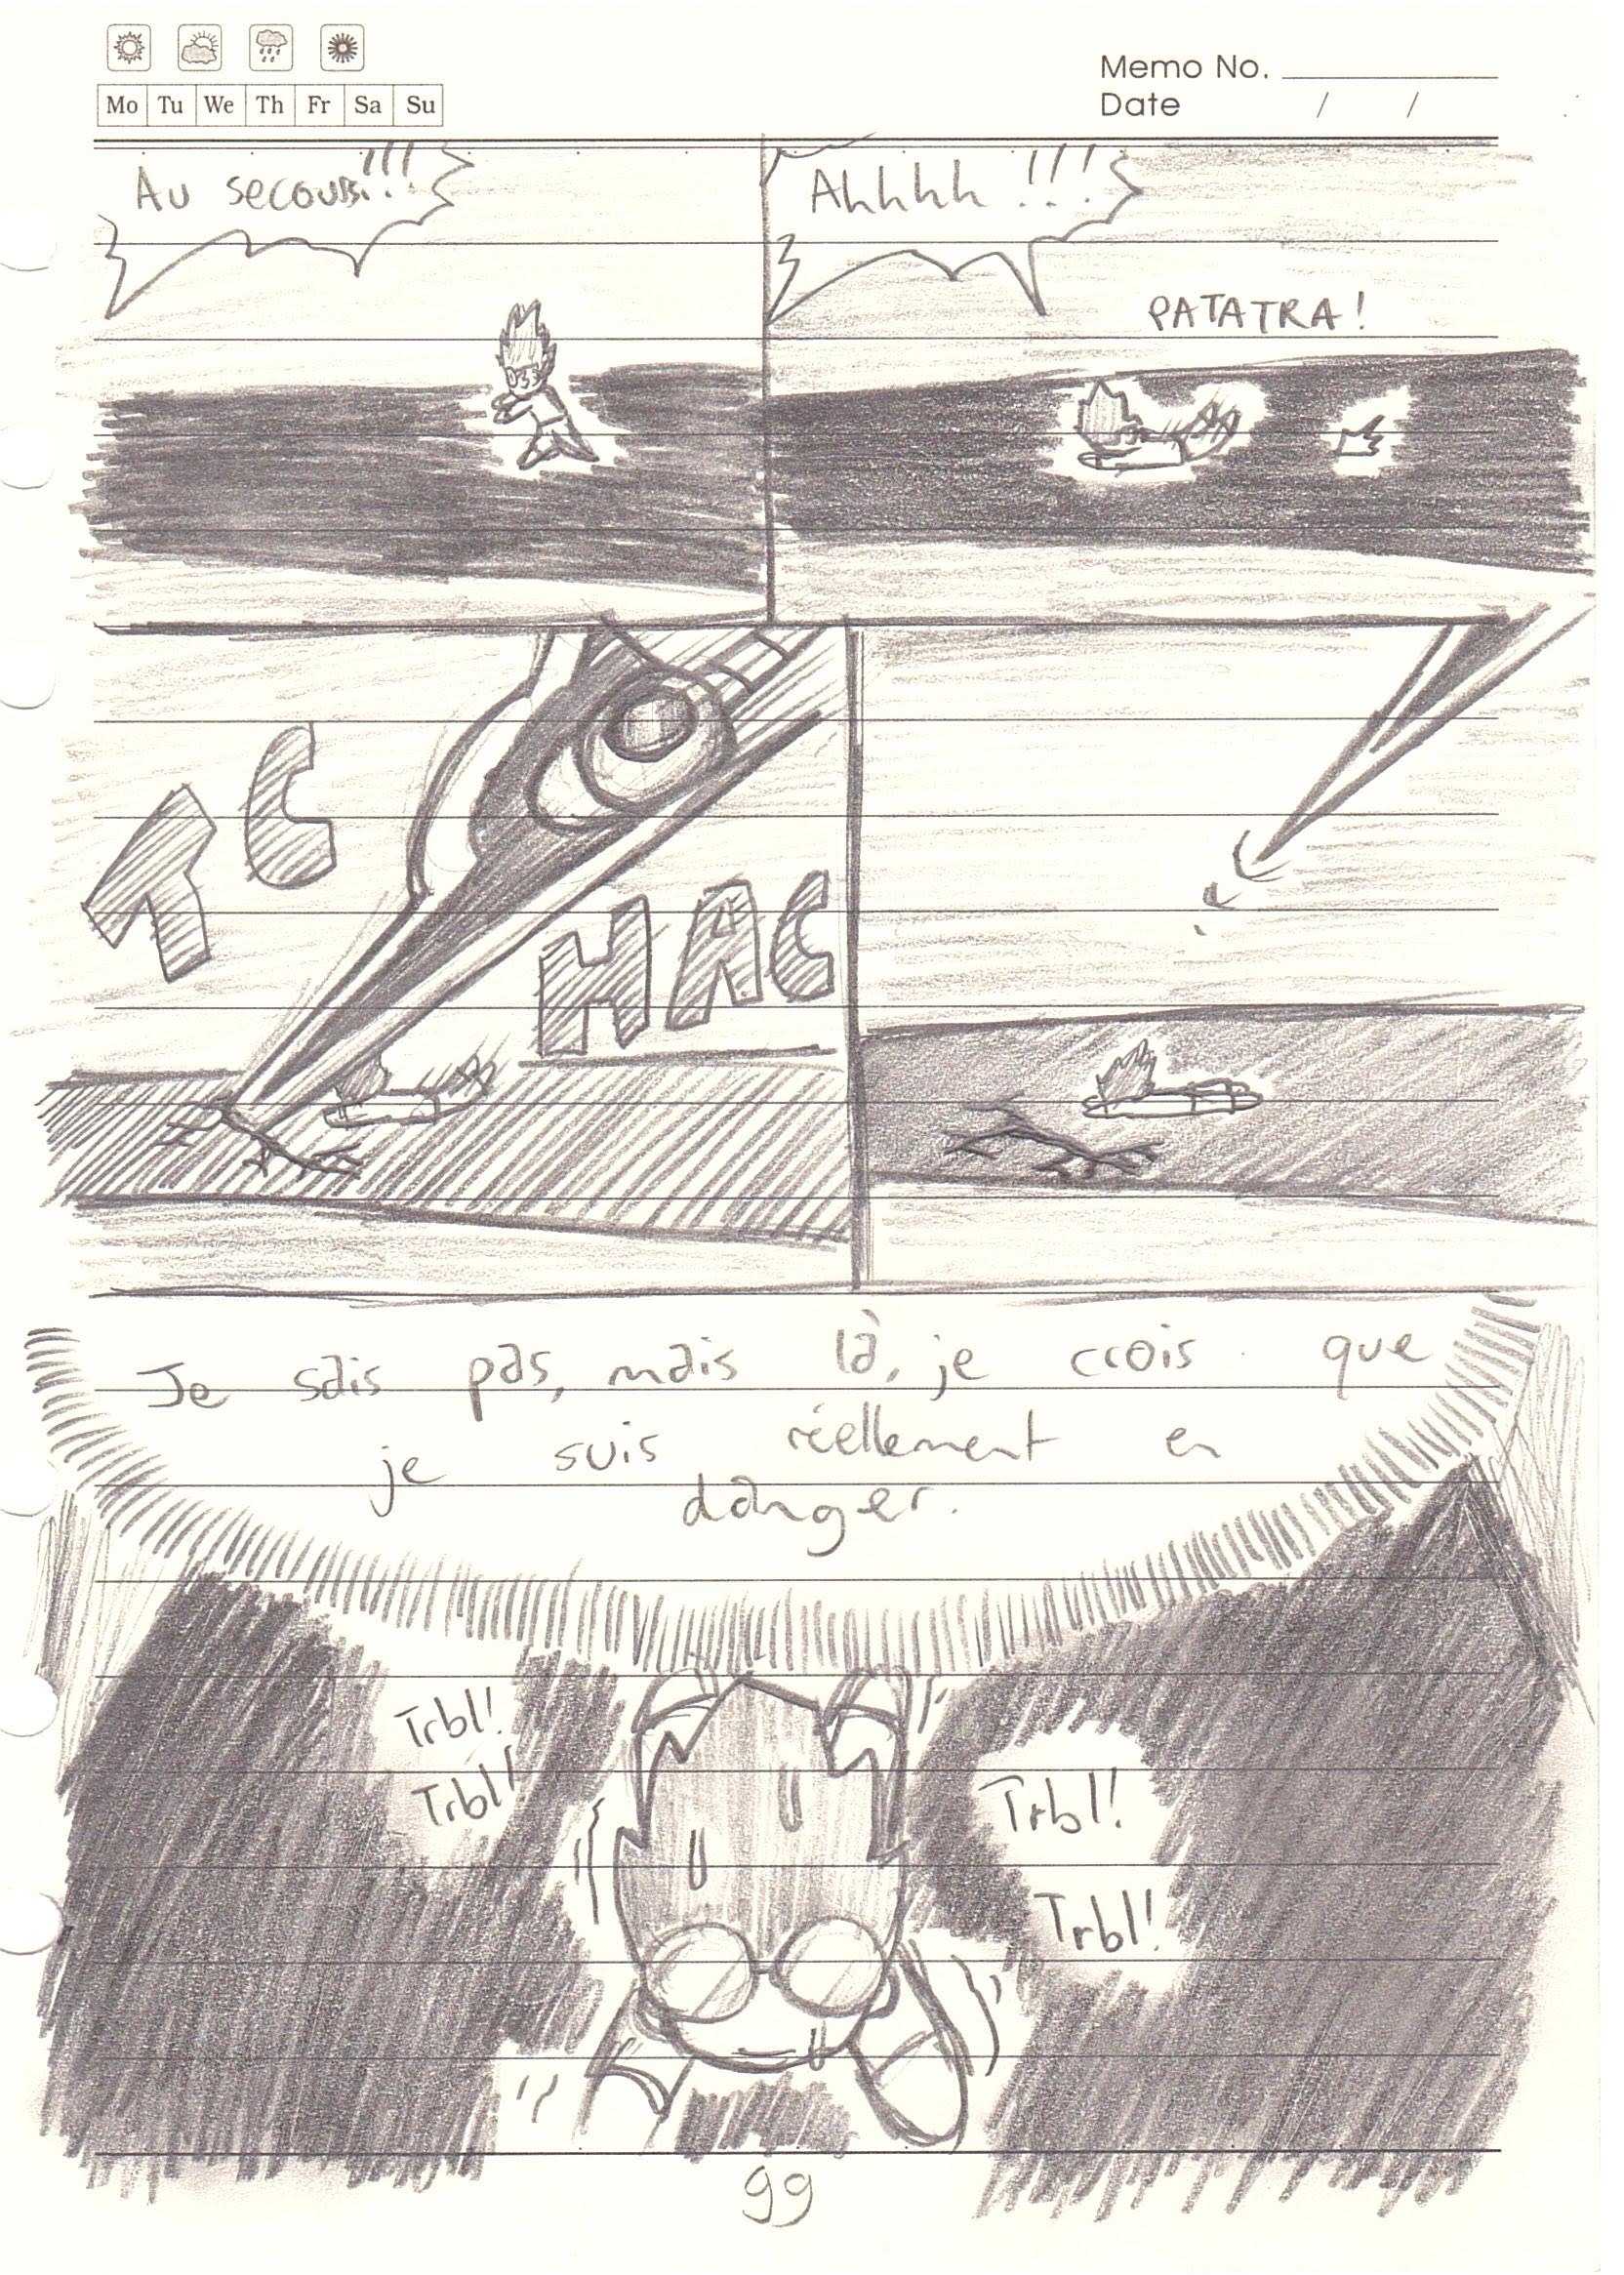 Memo No.
Mo Tu We Th Fr Sa Su
Date / /
Au secours!!!
Ahhhh !!!
PATATRA!
TC
HAC
Je sais pas, mais là, je crois que
je suis réellement en
danger.
Trbl!
Trbl!
Trbl!
Trbl!
99